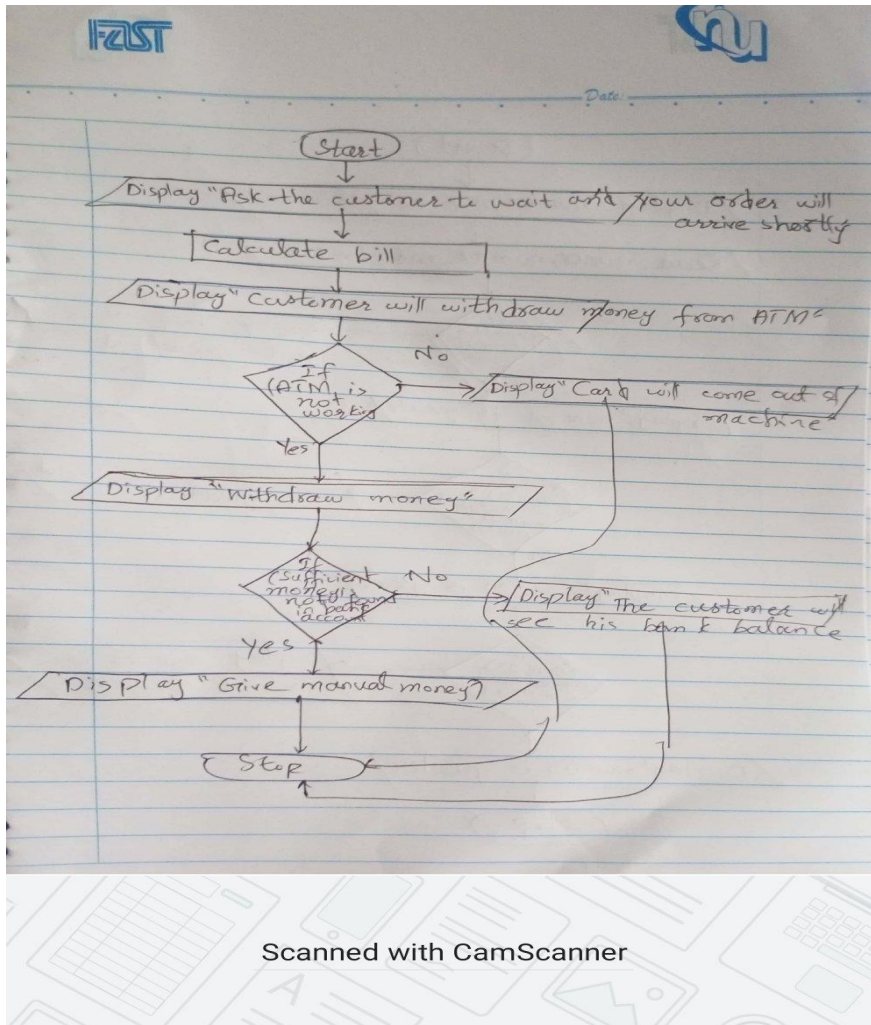 FAST
nu
Date:
Start
Display "Ask the customer to wait and your order will
arrive shortly
Calculate bill
Display "Customer will withdraw money from ATM"
If
(ATM is
not
working
No
Display "Card will come out of
machine"
Yes
Display "Withdraw money"
If
(sufficient
money is
not found
in bank
account
No
Display "The customer will
see his bank balance
Yes
Display "Give manual money"
Stop
Scanned with CamScanner